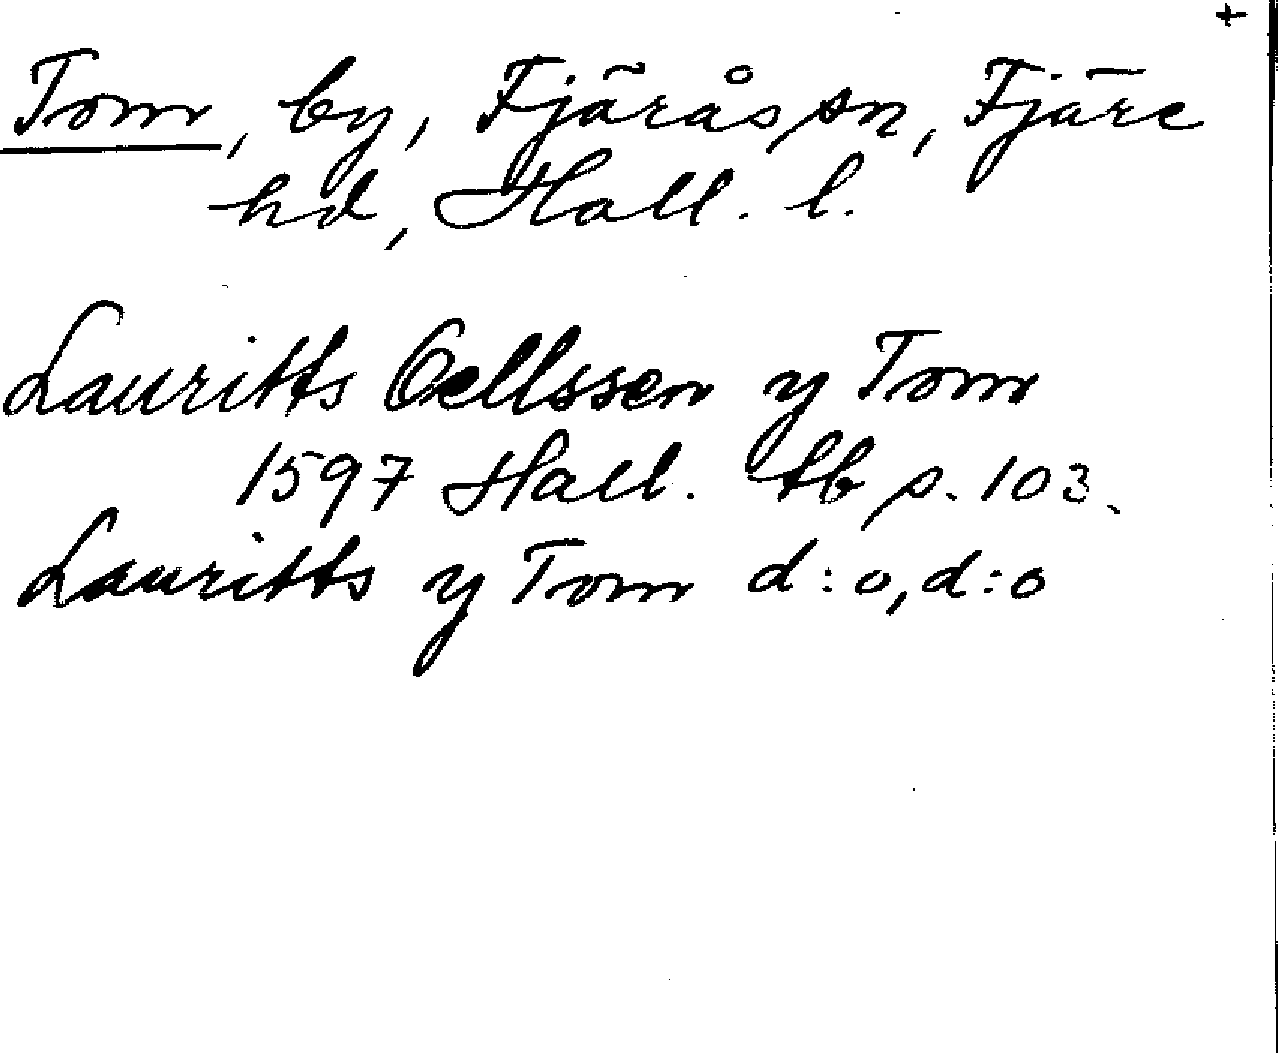 +
Tom, by, Fjärås sn, Fjäre
hd, Hall. l.
Lauritts Oellssen y Tom
1597 Hall. tb p. 103.
Lauritts y Tom d:o, d:o